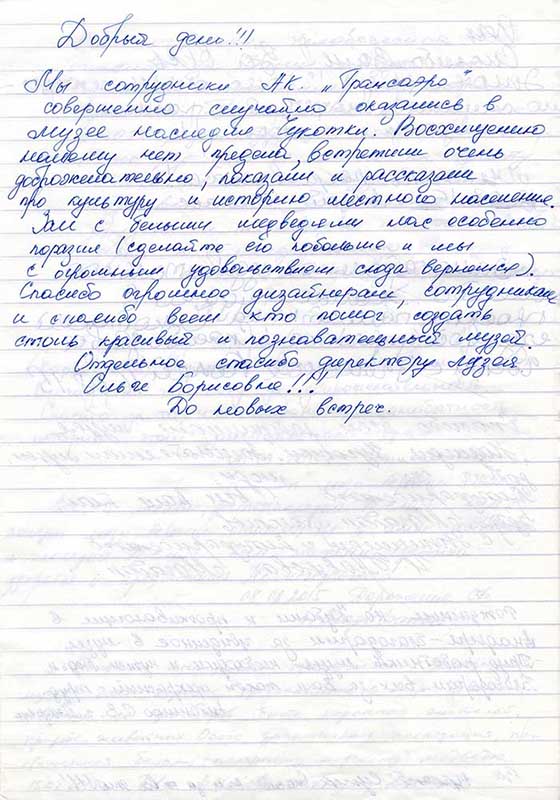 Добрый день!!!
Мы сотрудники АК. „Трансаэро"
совершенно случайно оказались в
музее наследия Чукотки. Восхищению
нашему нет предела, встретили очень
доброжелательно, показали и рассказали
про культуру и историю местного население.
Зал с белыми медведями нас особенно
поразил (сделайте его побольше и мы
с огромным удовольствием сюда вернемся).
Спасибо огромное дизайнерам, сотрудникам
и спасибо всем кто помог создать
столь красивый и познавательный музей.
Отдельное спасибо директору музея
Ольге Борисовне!!!
До новых встреч.